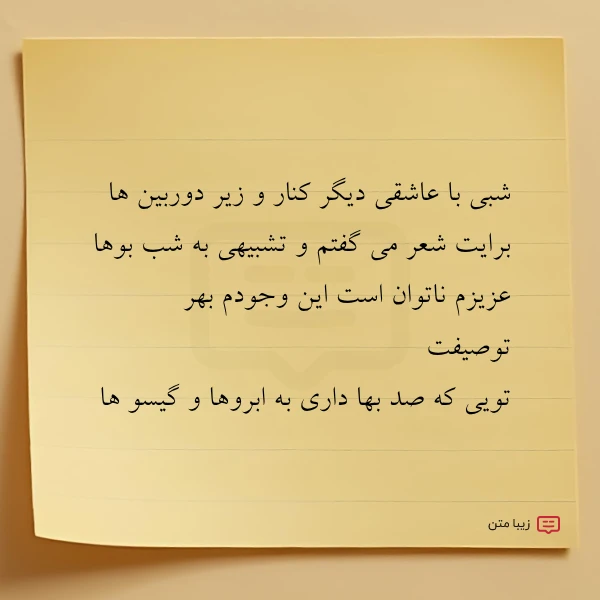 شبی با عاشقی دیگر کنار و زیر دوربین ها
برایت شعر می گفتم و تشبیهی به شب بوها
عزیزم ناتوان است این وجودم بهر
توصیفت
تویی که صد بها داری به ابروها و گیسو ها
زیبا متن